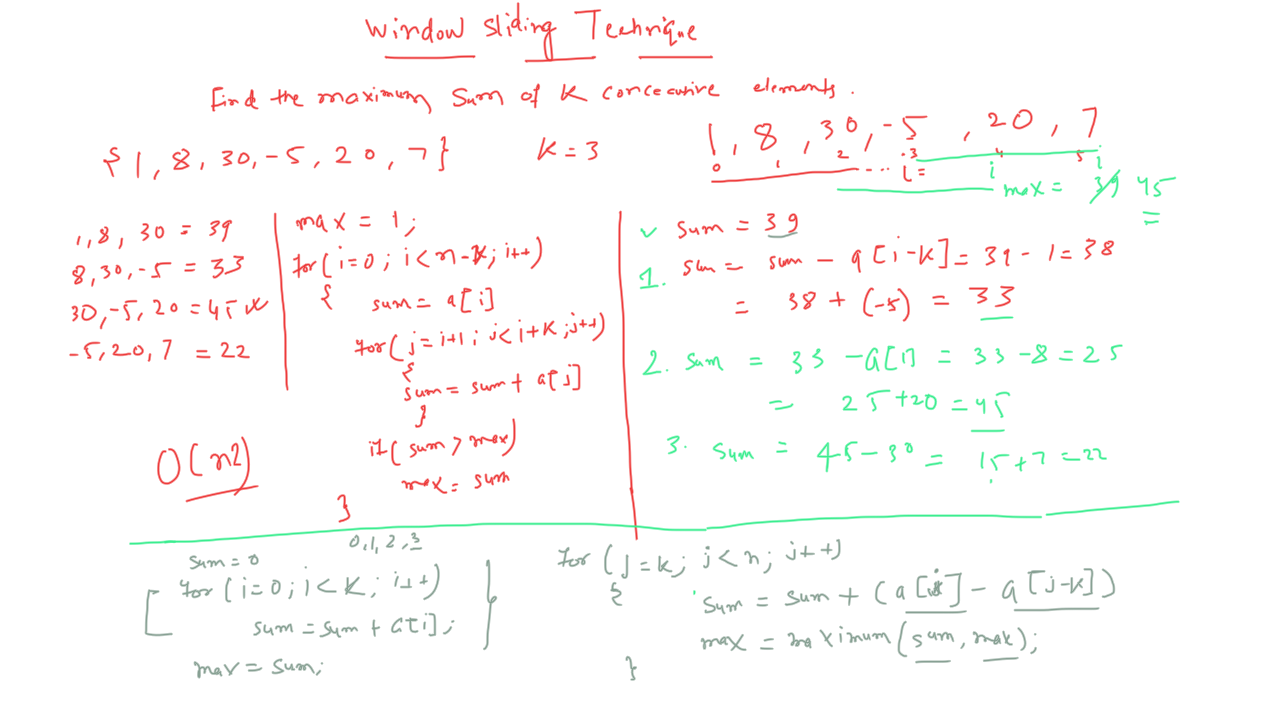 Window Sliding Technique
Find the maximum sum of K conceative elements.
{1, 8, 30, -5, 20, 7} K = 3
1, 8, 30, -5, 20, 7
0 1 2 3 4 5
i = i i
max = 39 45
1, 8, 30 = 39
8, 30, -5 = 33
30, -5, 20 = 45
-5, 20, 7 = 22
O(n2)
max = 1;
for(i=0; i<n-k; i++)
{
sum = a[i]
for(j=i+1; j<i+k; j++)
{
sum = sum + a[j]
}
if(sum > max)
max = sum
}
sum = 39
1. sum = sum - a[i-k] = 39 - 1 = 38
= 38 + (-5) = 33
2. sum = 33 - a[1] = 33 - 8 = 25
= 25 + 20 = 45
3. sum = 45 - 30 = 15 + 7 = 22
0, 1, 2, 3
sum = 0
for(i=0; i<k; i++)
sum = sum + a[i];
max = sum;
for(j=k; j<n; j++)
{
sum = sum + (a[j] - a[j-k])
max = maximum(sum, max);
}